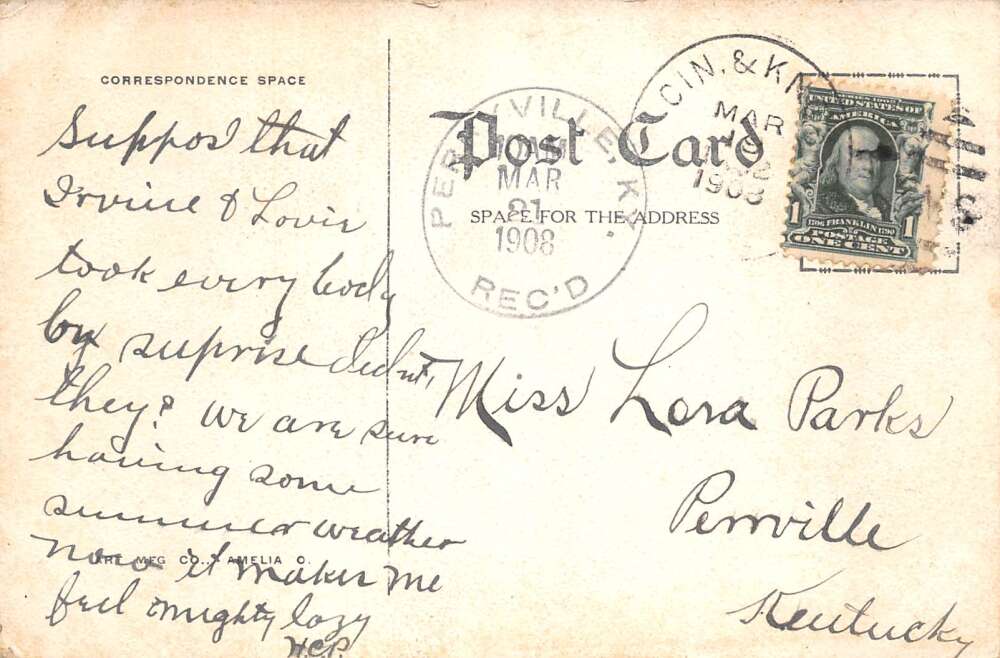 CORRESPONDENCE SPACE
Suppos that
Irvine & Lovie
took every body
by suprise didnt,
they? we are sure
having some
summer weather
now it makes me
feel mighty lazy
H.C.P.
MFG CO., AMELIA O.
Post Card
SPACE FOR THE ADDRESS
PERRYVILLE, KY.
MAR
21
1908
REC'D
CIN. & KN
MAR
1908
SERIES 1902
UNITED STATES OF
AMERICA
1 1
1706 FRANKLIN 1790
POSTAGE
ONE CENT
Miss Lora Parks
Perrville
Kentucky